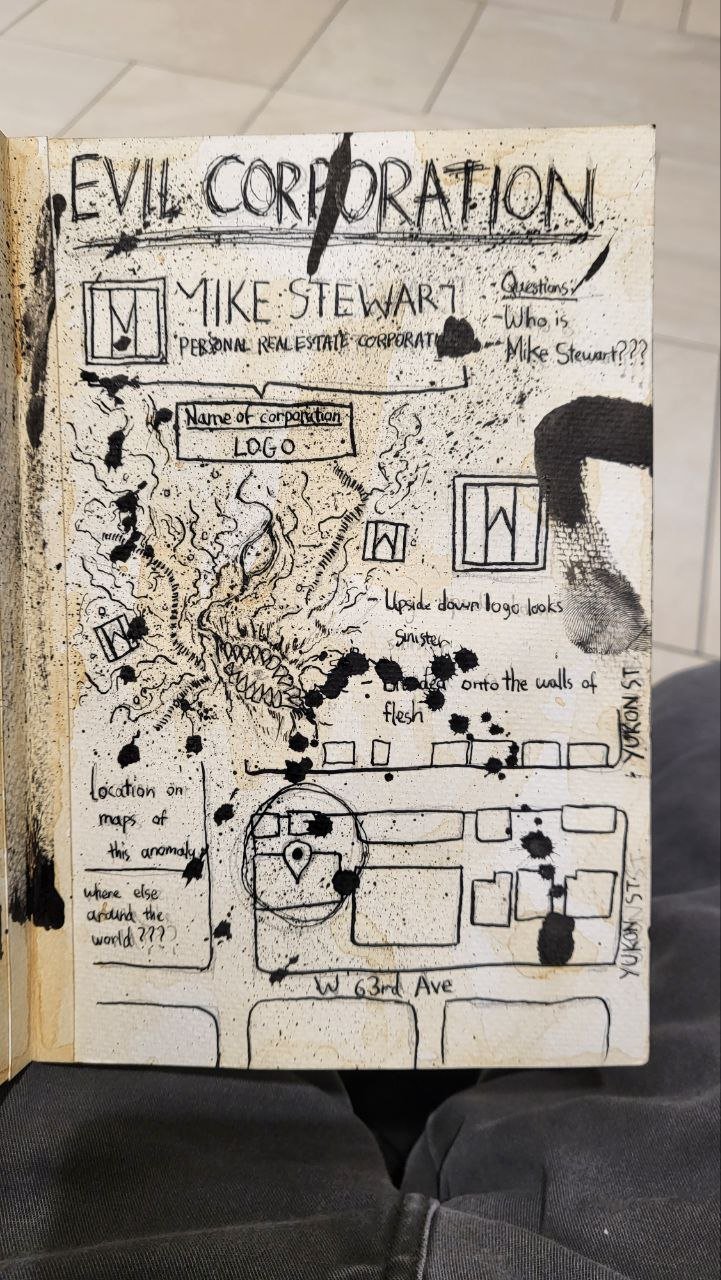 EVIL CORPORATION
MIKE STEWART
PERSONAL REAL ESTATE CORPORATI
Questions:
- Who is
- Mike Stewart???
Name of corporation
LOGO
- Upside down logo looks
Sinister
- Branded onto the walls of
flesh
YUKON ST
Location on
maps of
this anomaly
where else
around the
world???
YUKON ST
W 63rd Ave